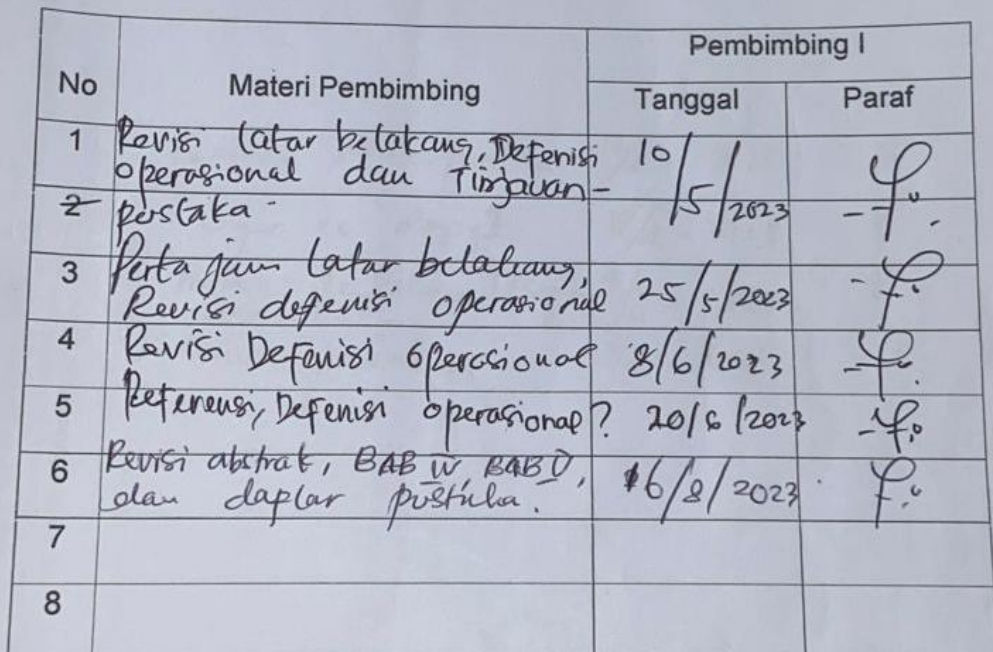 Pembimbing I
No Materi Pembimbing Tanggal Paraf
1 Revisi latar belakang, Defenisi 10/5/2023
operasional dan Tinjauan-
2 pustaka -
3 Pertajam latar belakang,
Revisi defenisi operasional 25/5/2023
4 Revisi Defenisi operasional 8/6/2023
5 Referensi, Defenisi operasional? 20/6/2023
6 Revisi abstrak, BAB IV, BAB V,
dan daplar pustuka. 16/8/2023
7
8